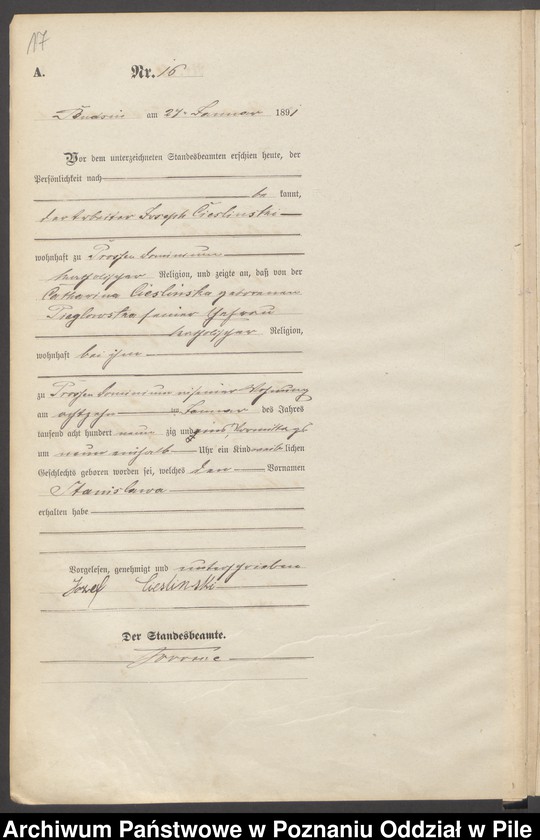 17
A. Nr. 16
am 24. Januar 1891
Vor dem unterzeichneten Standesbeamten erschien heute, der
Persönlichkeit nach
be kannt,
der Arbeiter Joseph Cieslinski
wohnhaft zu Dominium
katholischer Religion, und zeigte an, daß von der
Catharina Cieslinska geborenen
seiner Ehefrau
katholischer Religion,
wohnhaft bei ihm
zu Dominium in seiner Wohnung
am achtzehn ten Januar des Jahres
tausend acht hundert neun zig und eins, Vormittags
um neun einhalb Uhr ein Kind weib lichen
Geschlechts geboren worden sei, welches den Vornamen
Stanislawa
erhalten habe
Vorgelesen, genehmigt und unterschrieben
Jozef Cieslinski
Der Standesbeamte.
Archiwum Państwowe w Poznaniu Oddział w Pile